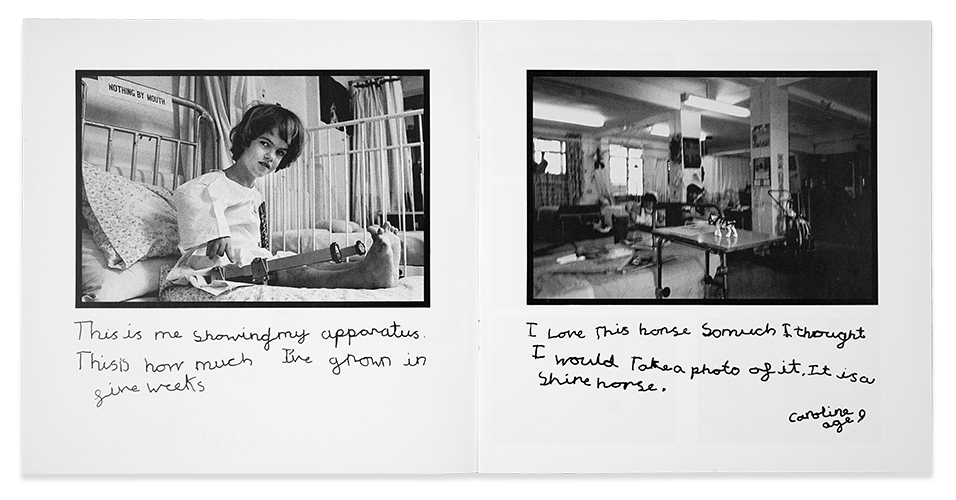 NOTHING BY MOUTH
This is me showing my apparatus.
This is how much I've grown in
five weeks
I Love This horse So much I thought
I would Take a photo of it. It is a
Shire horse.
Caroline
age 9